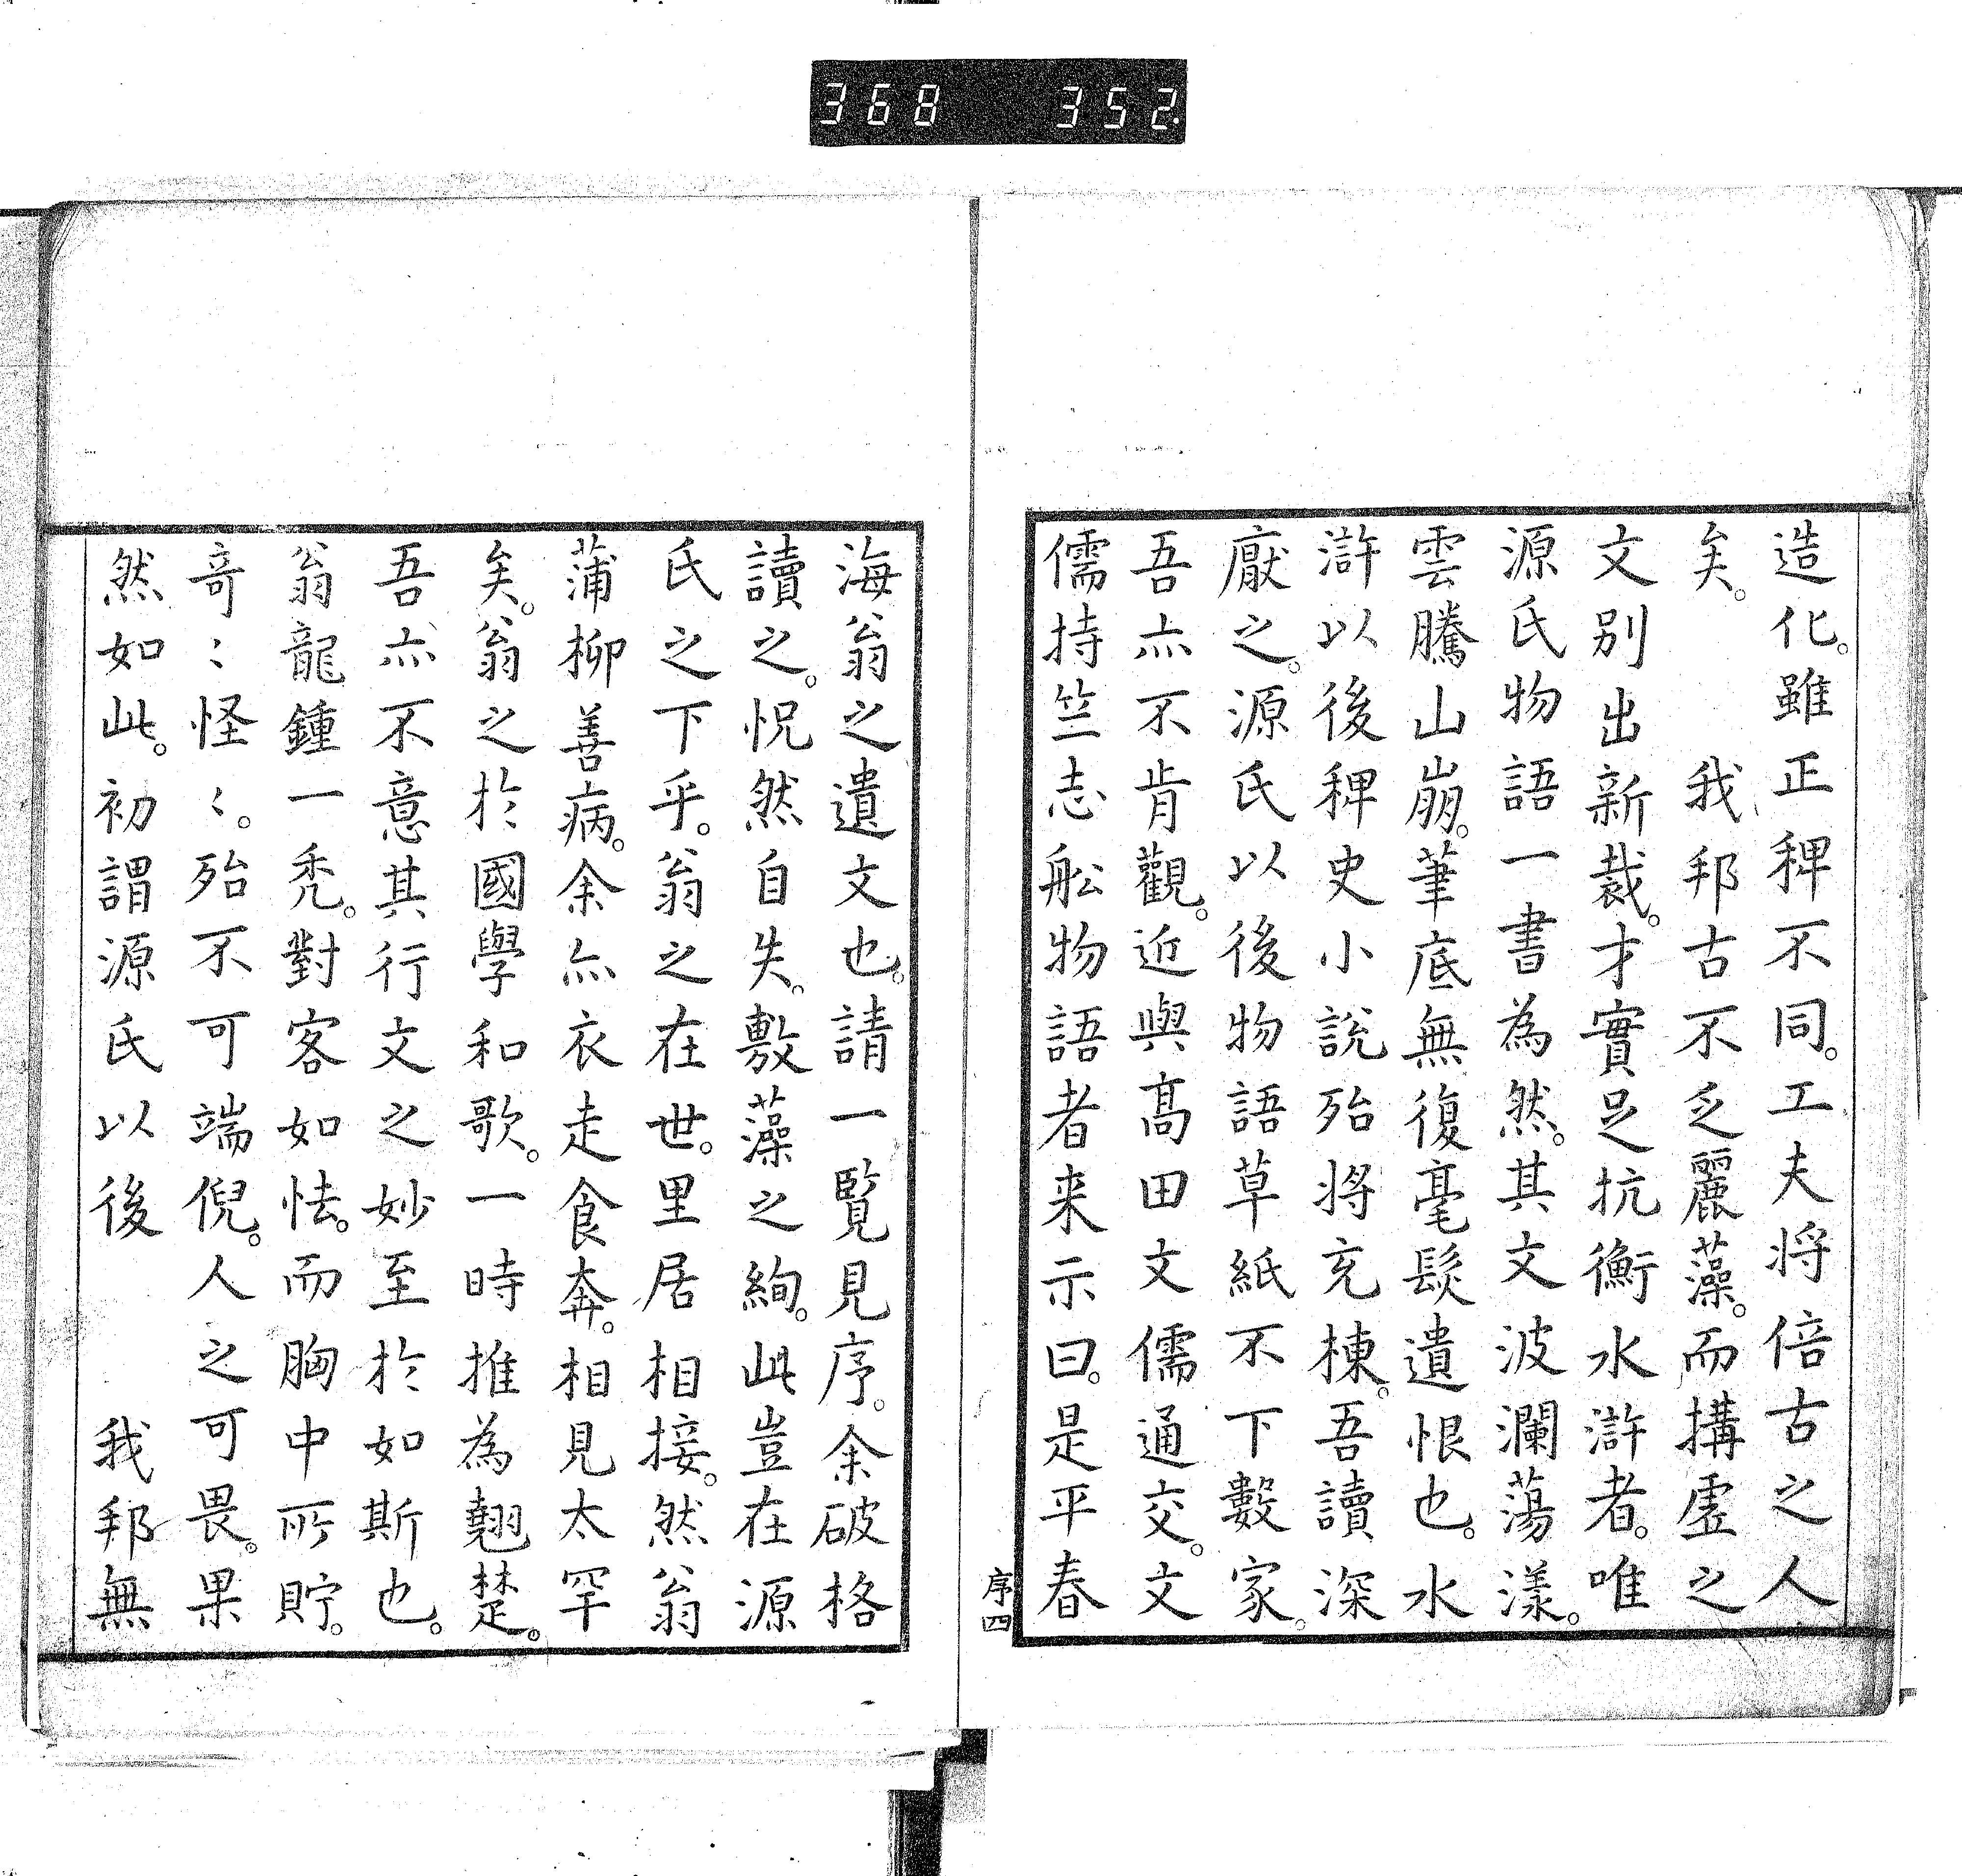 368 352
造化。雖正稗不同。工夫將倍古之人
矣。　我邦古不乏麗藻。而搆虛之
文別出新裁。才實足抗衡水滸者。唯
源氏物語一書為然。其文波瀾蕩漾。
雲騰山崩。筆底無復毫髮遺恨也。水
滸以後稗史小說殆將充棟。吾讀深
厭之。源氏以後物語草紙不下數家。
吾亦不肯觀。近與高田文儒通交。文
儒持竺志舩物語者来示曰。是平春
序四
海翁之遺文也。請一覧見序。余破格
讀之。怳然自失。敷藻之絢。此豈在源
氏之下乎。翁之在世。里居相接。然翁
蒲柳善病。余亦衣走食奔。相見太罕
矣。翁之於國學和歌。一時推為翹楚。
吾亦不意其行文之妙至於如斯也。
翁龍鍾一禿。對客如怯。而胸中所貯。
奇〻怪〻。殆不可端倪。人之可畏。果
然如此。初謂源氏以後　我邦無